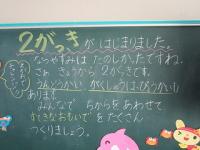 2がっきがはじまりました。
なつやすみは たのしかったですね。
さぁ きょうから 2がっきです。
うんどうかい がくしゅうはっぴょうかいも
あります。
みんなで ちからをあわせて
すてきなおもいでをたくさん
つくりましょう。